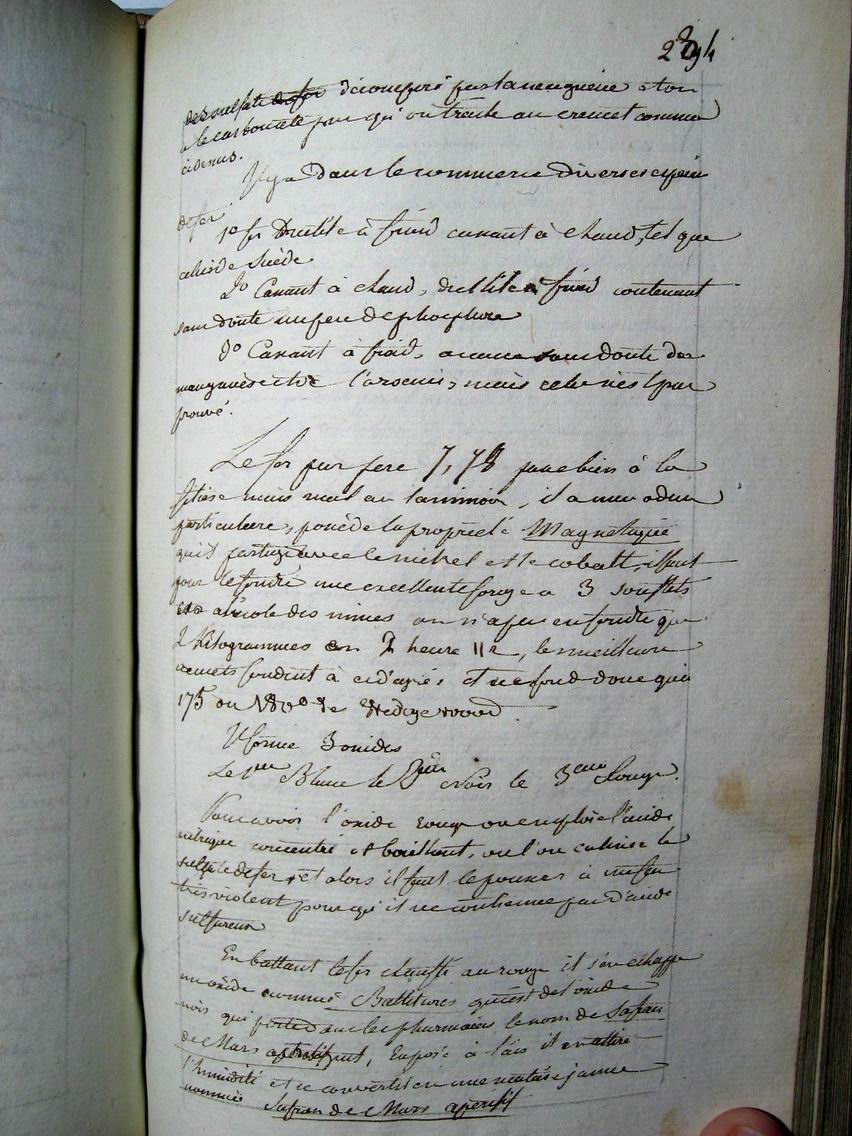 294
de sulfate de fer décomposé par la magnésie et on
a le carbonate pur qu'on traite au creuset comme
ci dessus.
Il y a Dans le commerce Diverses espèce
de fer
1º fer Ductile à froid cassant à chaud, tel que
celui de Suède
2º Cassant à chaud, ductile à froid contenant
sans doute un peu de phosphure
3º Cassant à froid, à cause sans doute du
manganèse et de l'arsenic, mais cela n'est pas
prouvé.
Le fer pur pese 7,78 passe bien à la
filière mais mal au laminoir, il a une odeur
particuliere, possède la propriété Magnétique
qu'il partage avec le nickel et le cobalt, il faut
pour le fondre une excellente forge a 3 soufflets
a l'école des mines on n'a pu en fondre que
2 Kilogrammes en 2 heure 1/2, les meilleurs
creusets fondent à ce degrés, et ne fond donc qu'à
175 ou 180º de Wedgewood.
Il forme 3 oxides
Le 1er Blanc le 2eme Noir le 3eme Rouge.
Pour avoir l'oxide rouge on emploie l'acide
nitrique concentré et bouillant, ou l'on calcine le
sulfate de fer et alors il faut le pousser à un feu
très violent pour qu'il ne contienne pas d'acide
sulfureux
En battant le fer chauffé au rouge il s'en échappe
un oxide nommé Battitures qui est de l'oxide
noir qui porte dans les pharmacies le nom de Safran
de Mars astringent, Exposé à l'air il en attire
l'humidité et se convertit en une matière jaune
nommée Safran de Mars apéritif